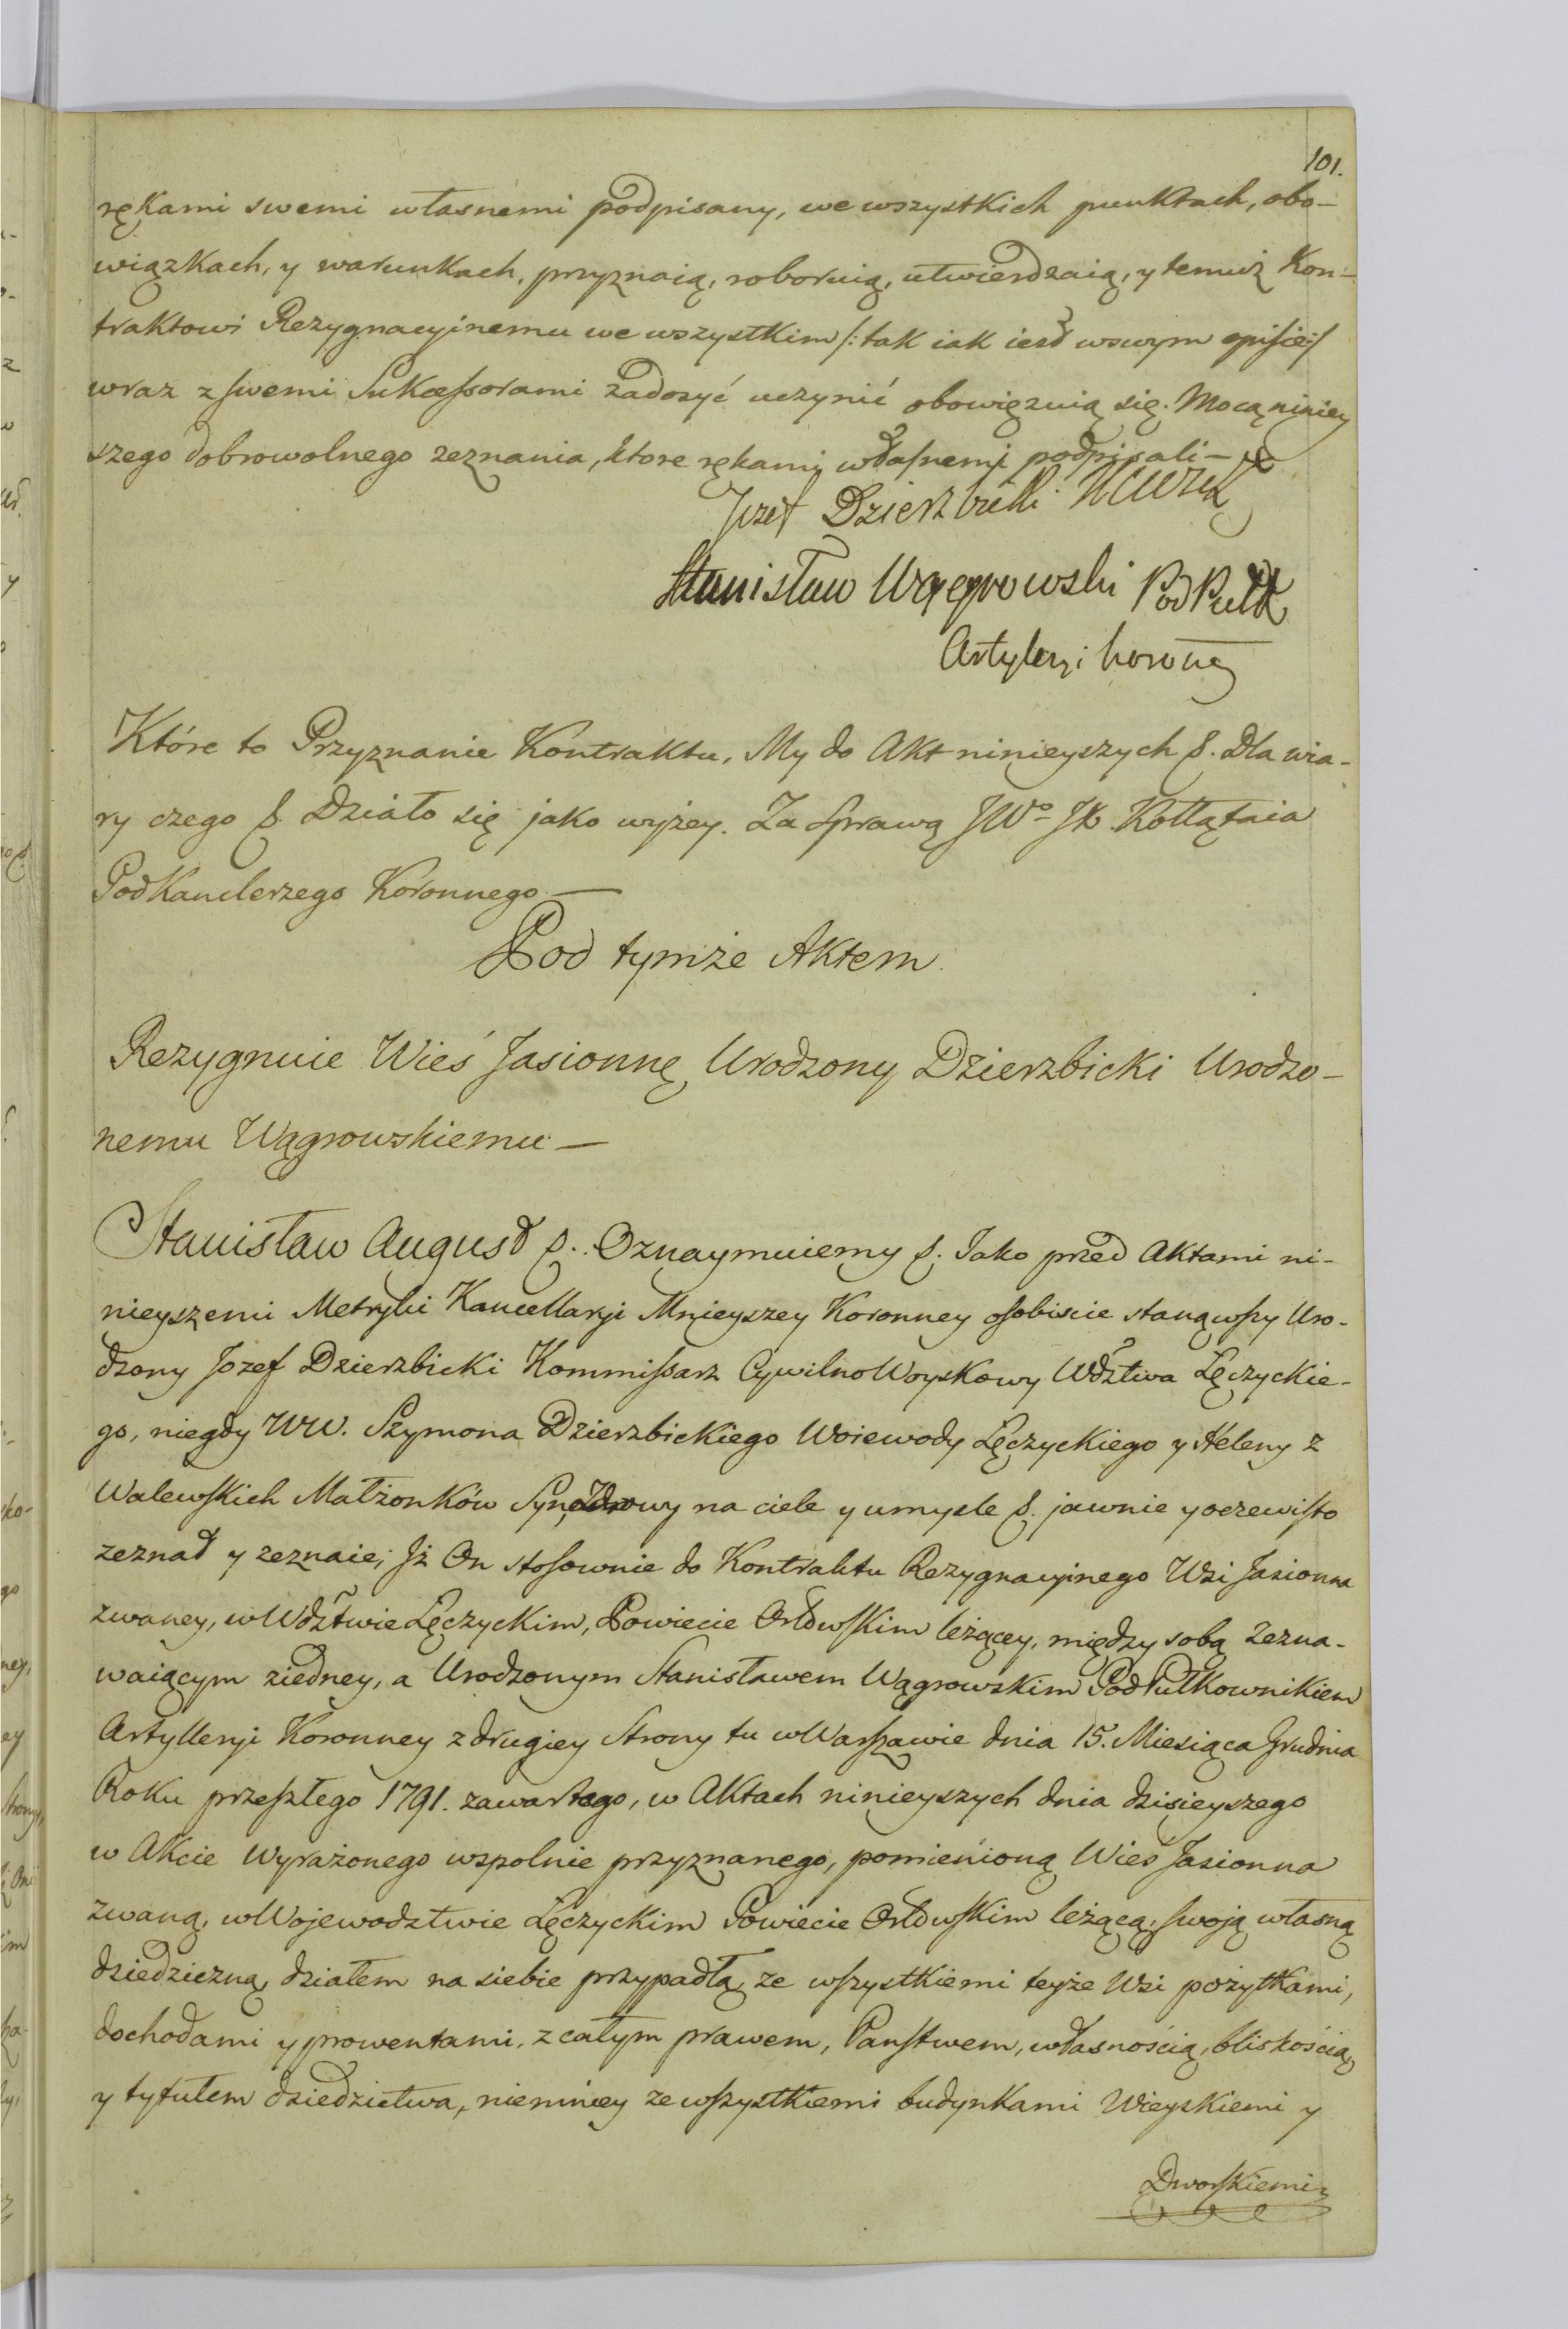 101.
rękami swemi własnemi podpisany, we wszystkich punktach, obo-
wiązkach, y warunkach, przyznaią, roboruią, utwierdzaią, y temuż Kon-
traktowi Rezygnacyinemu we wszystkim /: tak iak iest w swym opisie :/
wraz z swemi Sukcessorami zadosyć uczynić obowięzuią się. Mocą niniey
szego dobrowolnego zeznania, ktore rękami własnemi podpisali —
Jozef Dzierzbicki
Stanisław Wągrowski PodPułk
Artylerÿi korone
Które to Przyznanie Kontraktu, My do Akt ninieyszych &. Dla wia-
ry czego &. Działo się jako wyżey. Za Sprawą JWo JX. Kołłątaia
PodKanclerzego Koronnego —
Pod tymże Aktem.
Rezygnuie Wieś Jasionnę Urodzony Dzierzbicki Urodzo-
nemu Wągrowskiemu —
Stanisław August &. Oznaymuiemy &. Jako przed Aktami ni-
nieyszemi Metryki Kancellaryi Mnieyszey Koronney osobiscie stanąwszy Uro-
dzony Jozef Dzierzbicki Kommissarz CywilnoWoyskowy Wdztwa Łęczyckie-
go, niegdy WW. Szymona Dzierzbickiego Woiewody Łęczyckiego y Heleny z
Walewskich Małżonków Syn, Zdrowy na ciele y umysle &. jawnie y oczewisto
zeznał y zeznaie; Jż On stosownie do Kontraktu Rezygnacyinego Wsi Jasionna
zwaney, w Wdztwie Łęczyckim, Powiecie Orłowskim leżącey, między sobą Zezna-
waiącym z iedney, a Urodzonym Stanisławem Wągrowskim PodPułkownikiem
Artylleryi Koronney z drugiey Strony tu w Warszawie dnia 15. Miesiąca Grudnia
Roku przeszłego 1791. zawartego, w Aktach ninieyszych dnia dzisieyszego
w Akcie wyrażonego wspolnie przyznanego, pomienioną Wieś Jasionna
zwaną, w Wojewodztwie Łęczyckim Powiecie Orłowskim leżącą, swoją własną
dziedziczną, działem na siebie przypadłą, ze wszystkiemi teyże Wsi pożytkami,
dochodami y prowentami, z całym prawem, Państwem, własnością, bliskością,
y tytułem dziedzictwa, niemniey ze wszystkiemi budynkami Wieyskiemi y
Dworskiemi